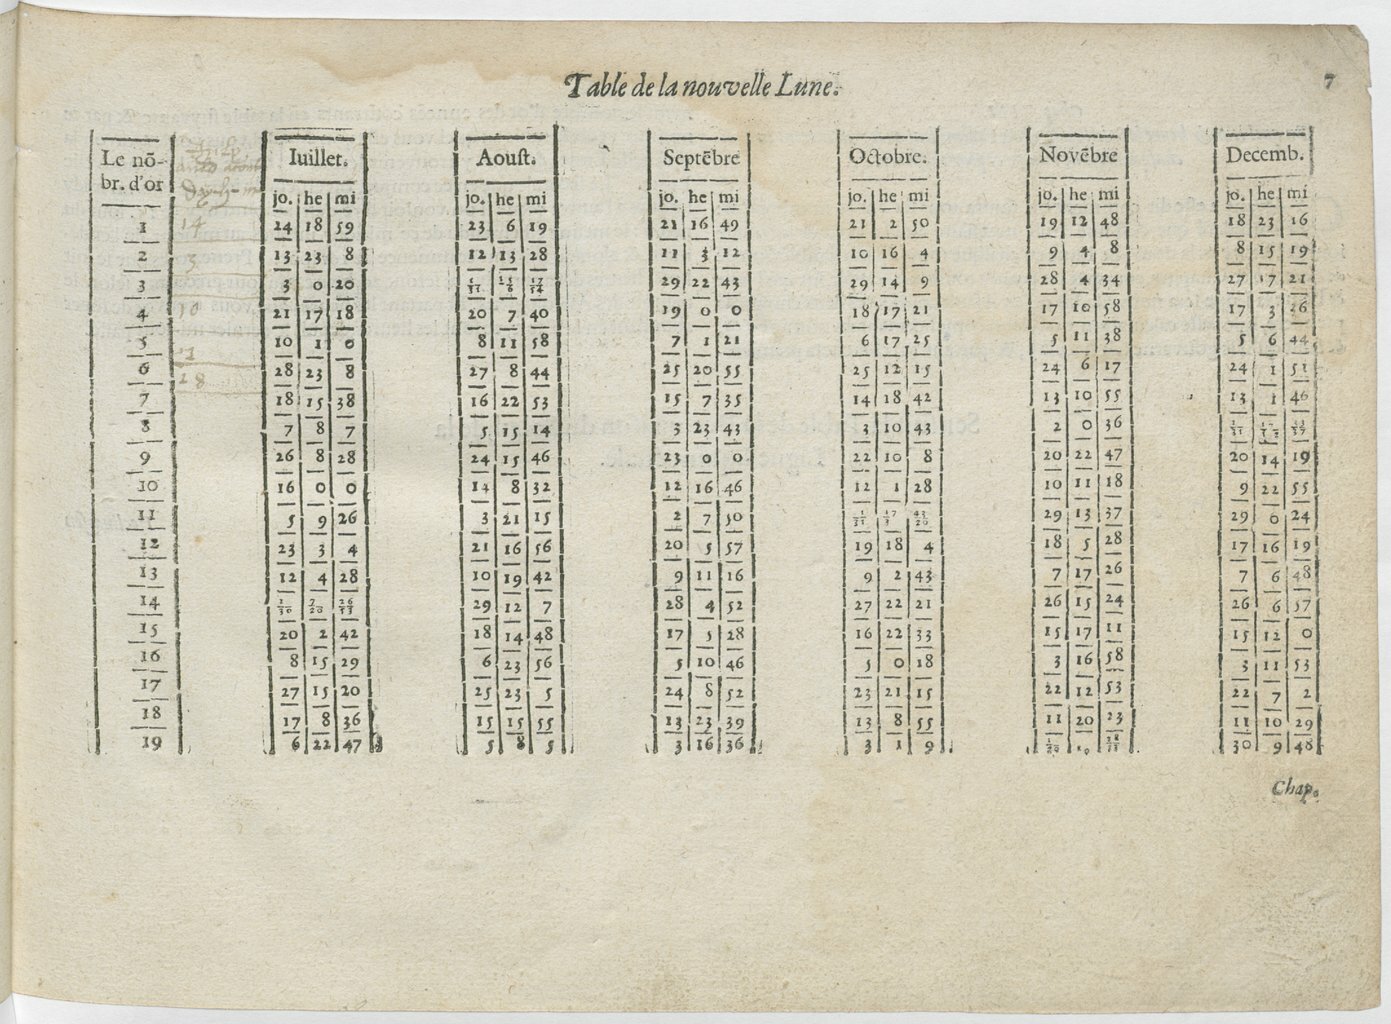 Table de la nouvelle Lune.
7
Le nō- Iuillet. Aoust. Septēbre Octobre. Novēbre Decemb.
br. d'or jo. he mi jo. he mi jo. he mi jo. he mi jo. he mi jo. he mi
1 24 18 59 23 6 19 21 16 49 21 2 50 19 12 48 18 23 16
2 13 23 8 12 13 28 11 3 12 10 16 4 9 4 8 8 15 19
3 3 0 20 29 22 43 29 14 9 28 4 34 27 17 21
4 21 17 18 20 7 40 19 0 0 18 17 21 17 10 58 17 3 26
5 10 1 0 8 11 58 7 1 21 6 17 25 5 11 38 5 6 44
6 28 23 8 27 8 44 25 20 55 25 12 15 24 6 17 24 1 51
7 18 15 38 16 22 53 15 7 35 14 18 42 13 10 55 13 1 46
8 7 8 7 5 15 14 3 23 43 3 10 43 2 0 36
9 26 8 28 24 15 46 23 0 0 22 10 8 20 22 47 20 14 19
10 16 0 0 14 8 32 12 16 46 12 1 28 10 11 18 9 22 55
11 5 9 26 3 21 15 2 7 50 29 13 37 29 0 24
12 23 3 4 21 16 56 20 5 57 19 18 4 18 5 28 17 16 19
13 12 4 28 10 19 42 9 11 16 9 2 43 7 17 26 7 6 48
14 29 12 7 28 4 52 27 22 21 26 15 24 26 6 57
15 20 2 42 18 14 48 17 5 28 16 22 33 15 17 11 15 12 0
16 8 15 29 6 23 56 5 10 46 5 0 18 3 16 58 3 11 53
17 27 15 20 25 23 5 24 8 52 23 21 15 22 12 53 22 7 2
18 17 8 36 15 15 55 13 23 39 13 8 55 11 20 23 11 10 29
19 6 22 47 5 8 5 3 16 36 3 1 9 30 9 48
Chap.